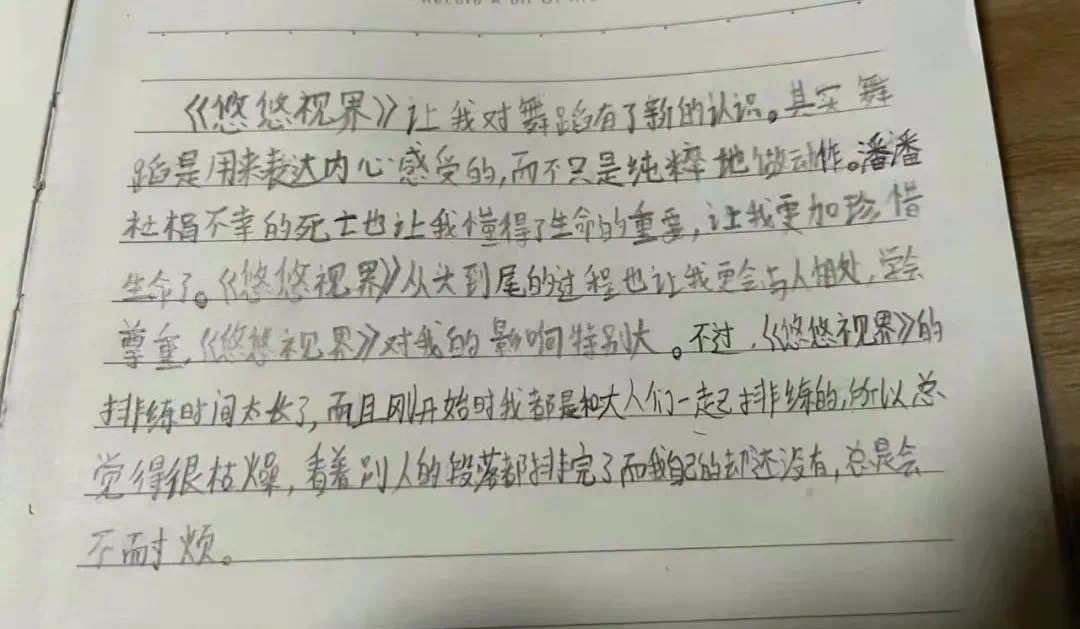 《悠悠视界》让我对舞蹈有了新的认识。其实舞
蹈是用来表达内心感受的,而不只是纯粹地做动作。潘潘
杜楣不幸的死亡也让我懂得了生命的重要,让我更加珍惜
生命了。《悠悠视界》从头到尾的过程也让我更会与人相处,学会
尊重,《悠悠视界》对我的影响特别大。不过,《悠悠视界》的
排练时间太长了,而且刚开始时我都是和大人们一起排练的,所以总
觉得很枯燥,看着别人的段落都排完了而我自己的却还没有,总是会
不耐烦。